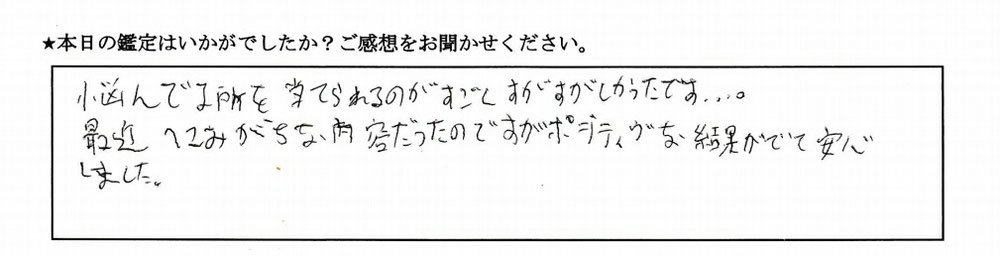 ★本日の鑑定はいかがでしたか？ご感想をお聞かせください。
小悩んでる所を 当てられるのがすごくすがすがしかったです....。
最近 へこみがちな内容だったのですがポジティヴな結果がでて安心
しました。